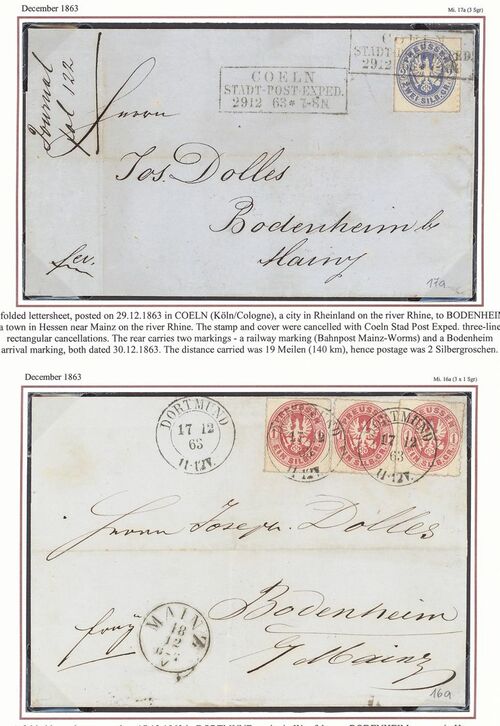 December 1863
Mi. 17a (3 Sgr)
Journal
fol 122
COELN
STADT-POST-EXPED.
29 12
COELN
STADT-POST-EXPED.
29 12 63 * 7-8 N.
PREUSSEN
ZWEI SILB. GR.
Herrn
Jos. Dolles
Bodenheim b/
Mainz
fr.
17a
folded lettersheet, posted on 29.12.1863 in COELN (Köln/Cologne), a city in Rheinland on the river Rhine, to BODENHEIM
a town in Hessen near Mainz on the river Rhine. The stamp and cover were cancelled with Coeln Stad Post Exped. three-line
rectangular cancellations. The rear carries two markings - a railway marking (Bahnpost Mainz-Worms) and a Bodenheim
arrival marking, both dated 30.12.1863. The distance carried was 19 Meilen (140 km), hence postage was 2 Silbergroschen.
December 1863
Mi. 16a (3 x 1 Sgr)
DORTMUND
17 12
63
11-12V.
DORTMUND
17 12
63
11-12V.
DORTMUND
17 12
63
11-12V.
PREUSSEN
EIN SILB. GR.
PREUSSEN
EIN SILB. GR.
PREUSSEN
EIN SILB. GR.
Herrn Joseph Dolles
Bodenheim
b/Mainz
MAINZ
18
12
16a